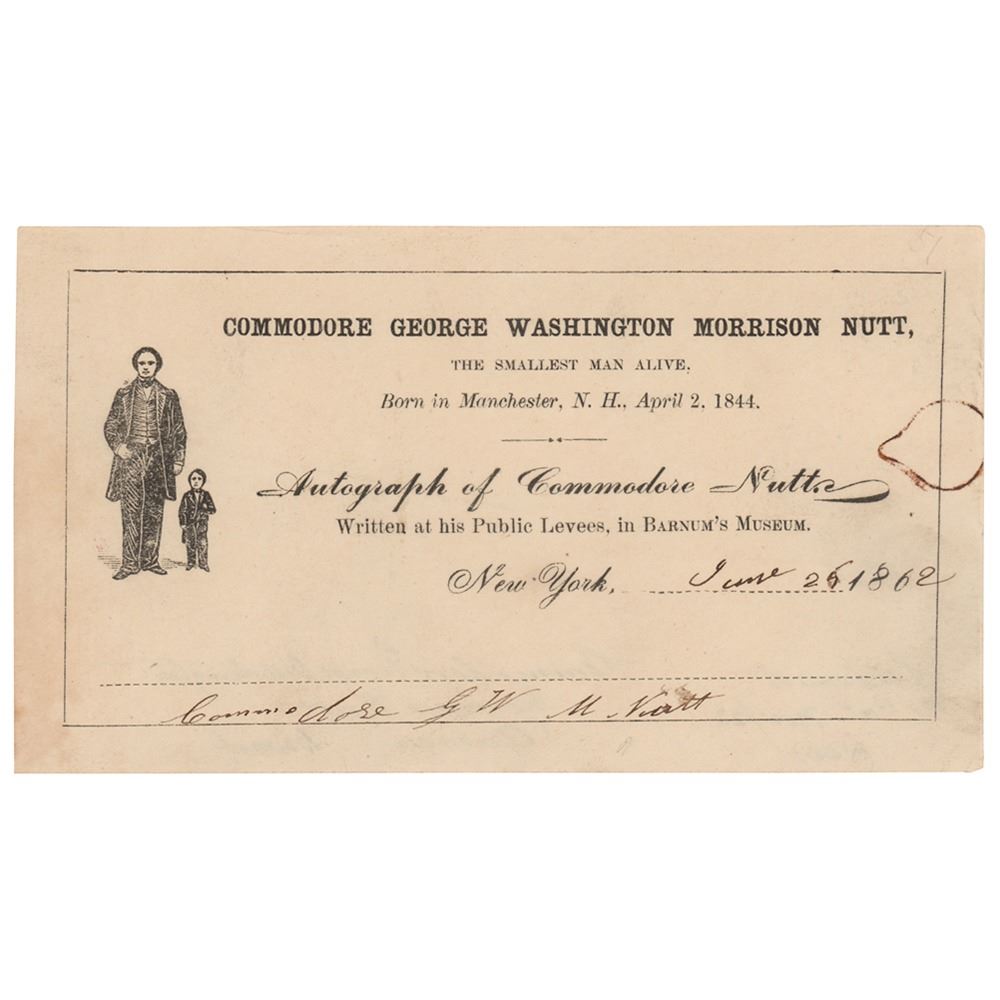 COMMODORE GEORGE WASHINGTON MORRISON NUTT,
THE SMALLEST MAN ALIVE.
Born in Manchester, N. H., April 2, 1844.
Autograph of Commodore Nutt.
Written at his Public Levees, in BARNUM'S MUSEUM.
New York, June 1862
Commodore G W M Nutt